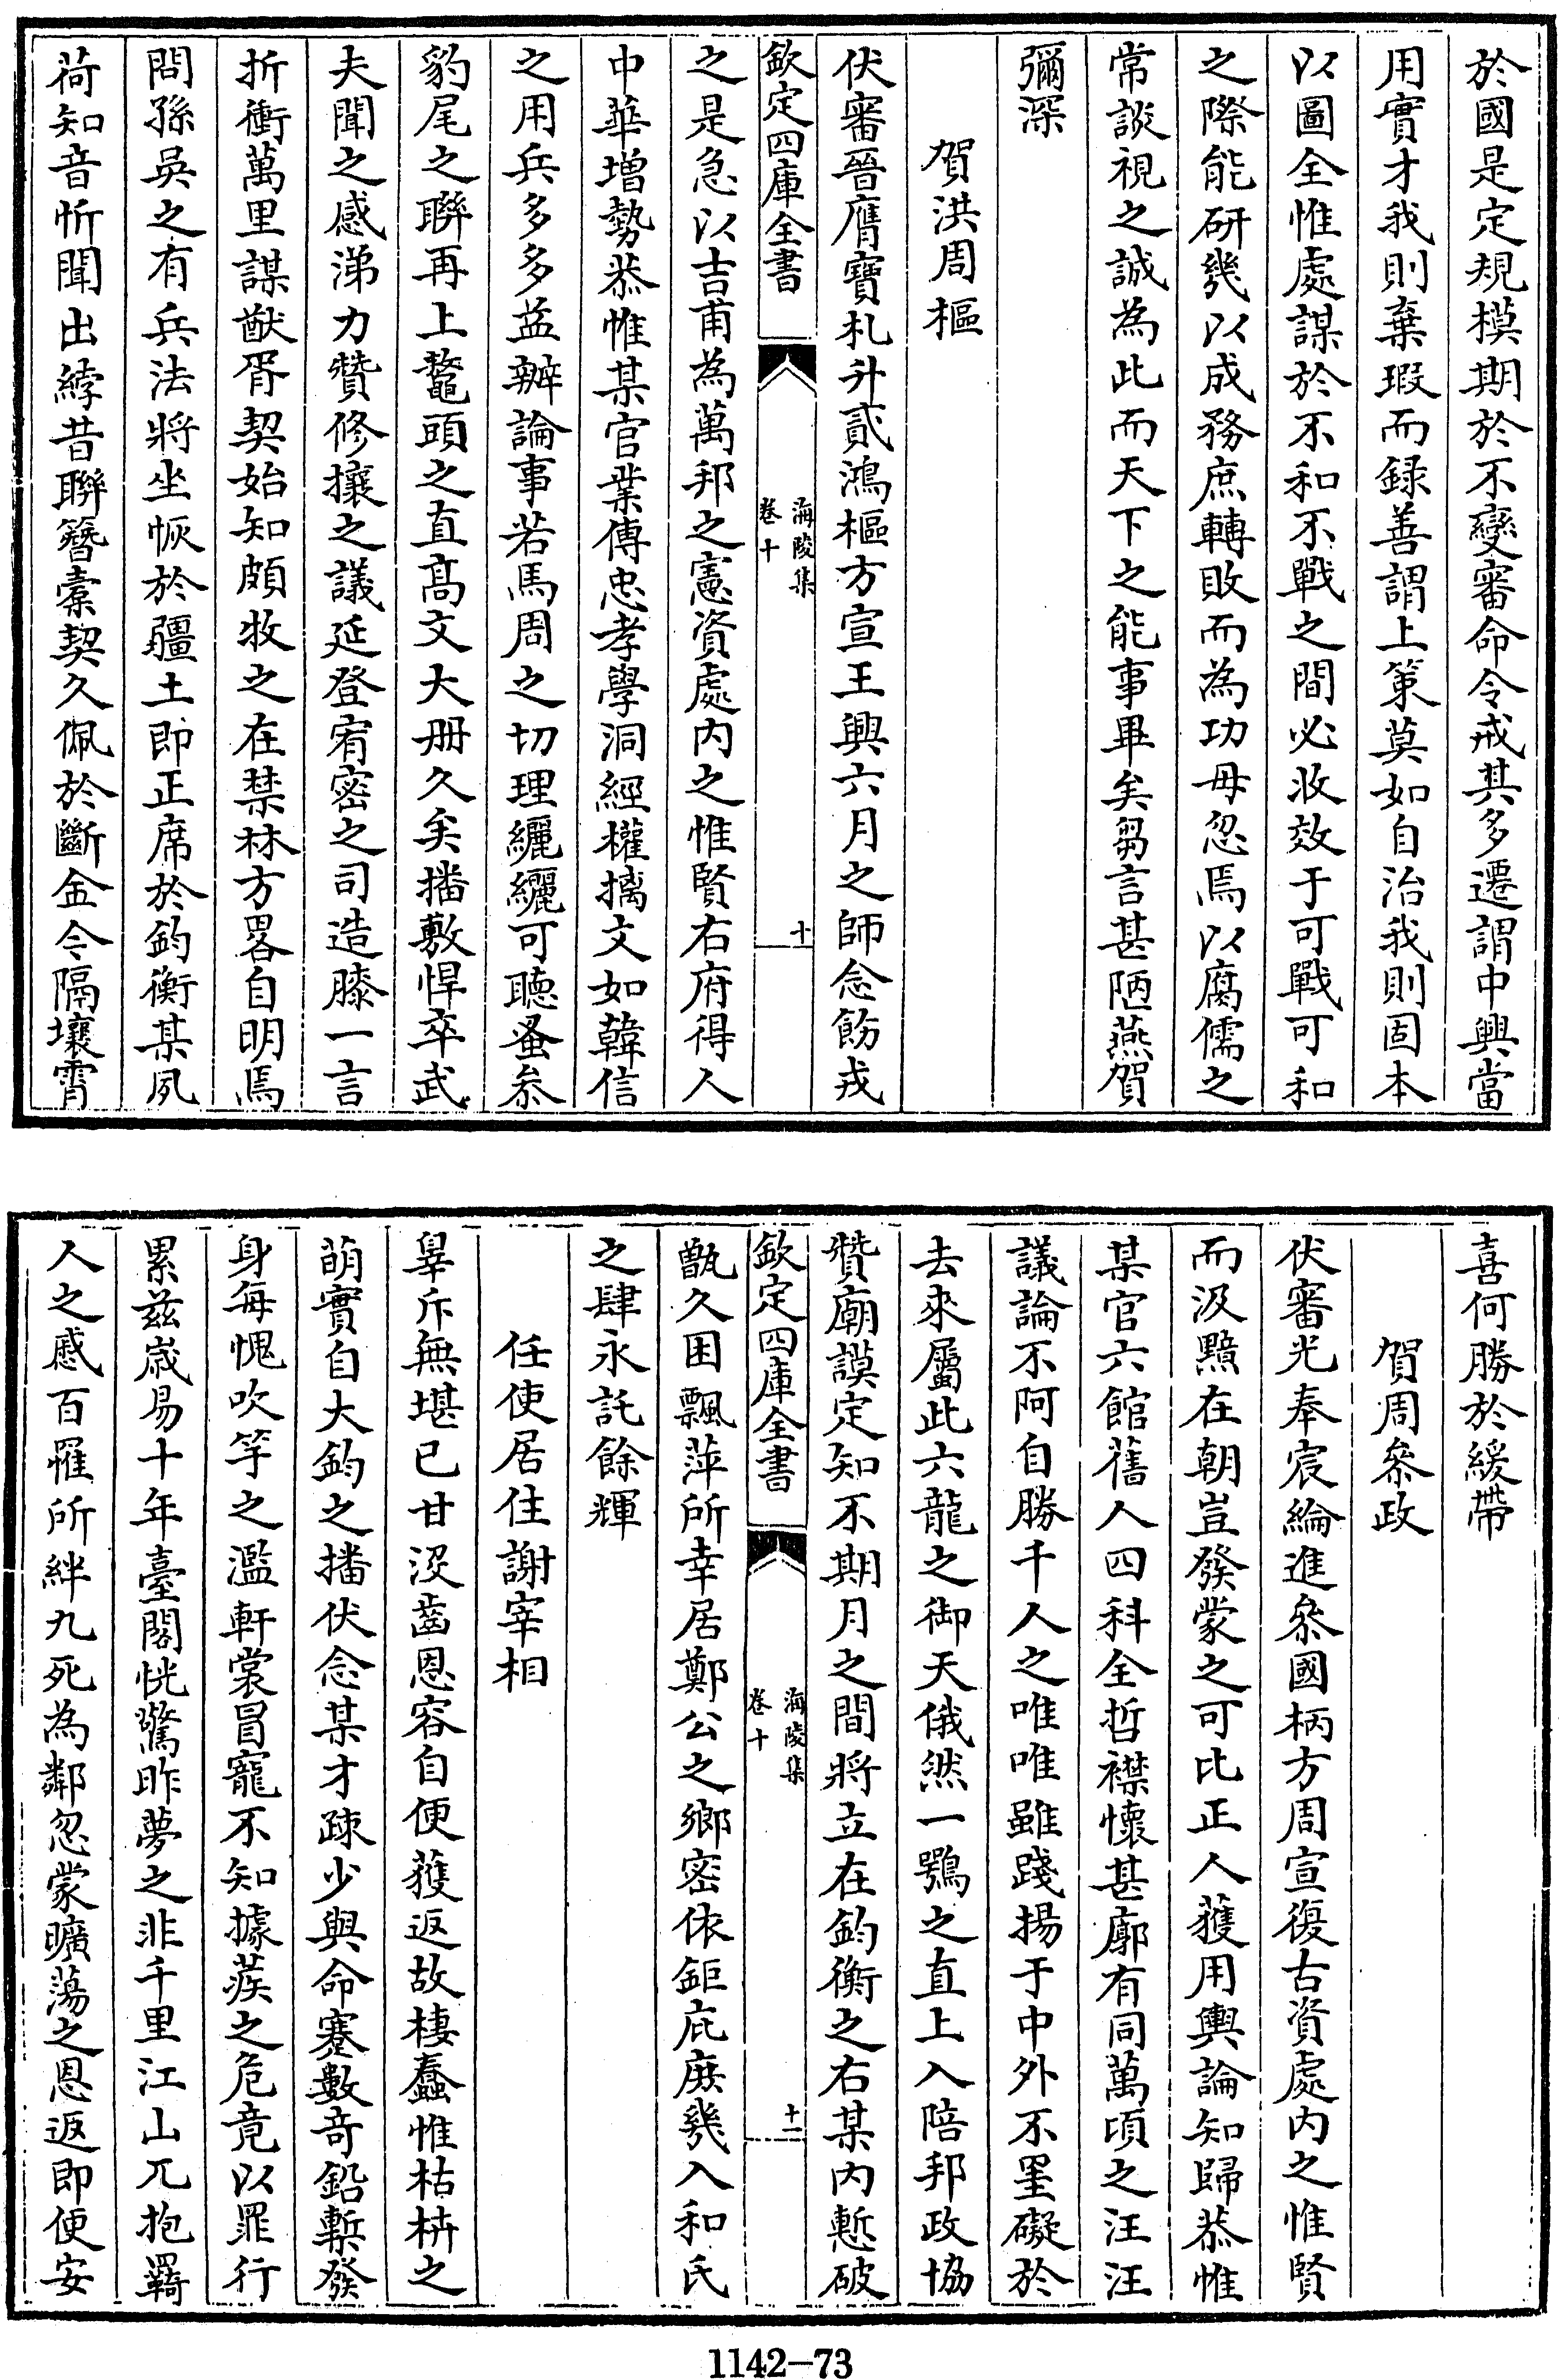 於國是定規模期於不變審命令戒其多遷謂中興當
用實才我則棄瑕而録善謂上策莫如自治我則固本
以圖全惟處謀於不和不戰之間必收效于可戰可和
之際能研幾以成務庶轉敗而為功毋忽焉以腐儒之
常談視之誠為此而天下之能事畢矣芻言甚陋燕賀
彌深
賀洪周樞
伏審晉膺寶札升貳鴻樞方宣王興六月之師念飭戎
欽定四庫全書
海陵集
卷十
十
之是急以吉甫為萬邦之憲資處內之惟賢右府得人
中華增勢恭惟某官業傳忠孝學洞經權摛文如韓信
之用兵多多益辦論事若馬周之切理纚纚可聽蚤叅
豹尾之聯再上鼇頭之直高文大册久矣播敷悍卒武
夫聞之感涕力贊修攘之議延登宥密之司造膝一言
折衝萬里謀猷胥契始知頗牧之在禁林方畧自明焉
問孫吳之有兵法將坐恢於疆土即正席於鈞衡某夙
荷知音忻聞出綍昔聯簪橐契久佩於斷金今隔壤霄
喜何勝於緩帶
賀周叅政
伏審光奉宸綸進叅國柄方周宣復古資處內之惟賢
而汲黯在朝豈發蒙之可比正人獲用輿論知歸恭惟
某官六館舊人四科全哲襟懷甚廓有同萬頃之汪汪
議論不阿自勝千人之唯唯雖踐揚于中外不罣礙於
去來屬此六龍之御天俄然一鶚之直上入陪邦政協
贊廟謨定知不期月之間將立在鈞衡之右某內慙破
欽定四庫全書
海陵集
卷十
十一
甑久困飄萍所幸居鄭公之鄉密依鉅庇庶幾入和氏
之肆永託餘輝
任使居住謝宰相
辠斥無堪已甘沒齒恩容自便獲返故棲蠢惟枯枿之
萌實自大鈞之播伏念某才疎少與命蹇數奇鉛槧發
身每愧吹竽之濫軒裳冒寵不知據蒺之危竟以罪行
累茲歲易十年臺閣恍驚昨夢之非千里江山兀抱羇
人之慼百罹所絆九死為鄰忽蒙曠蕩之恩返即便安
1142-73